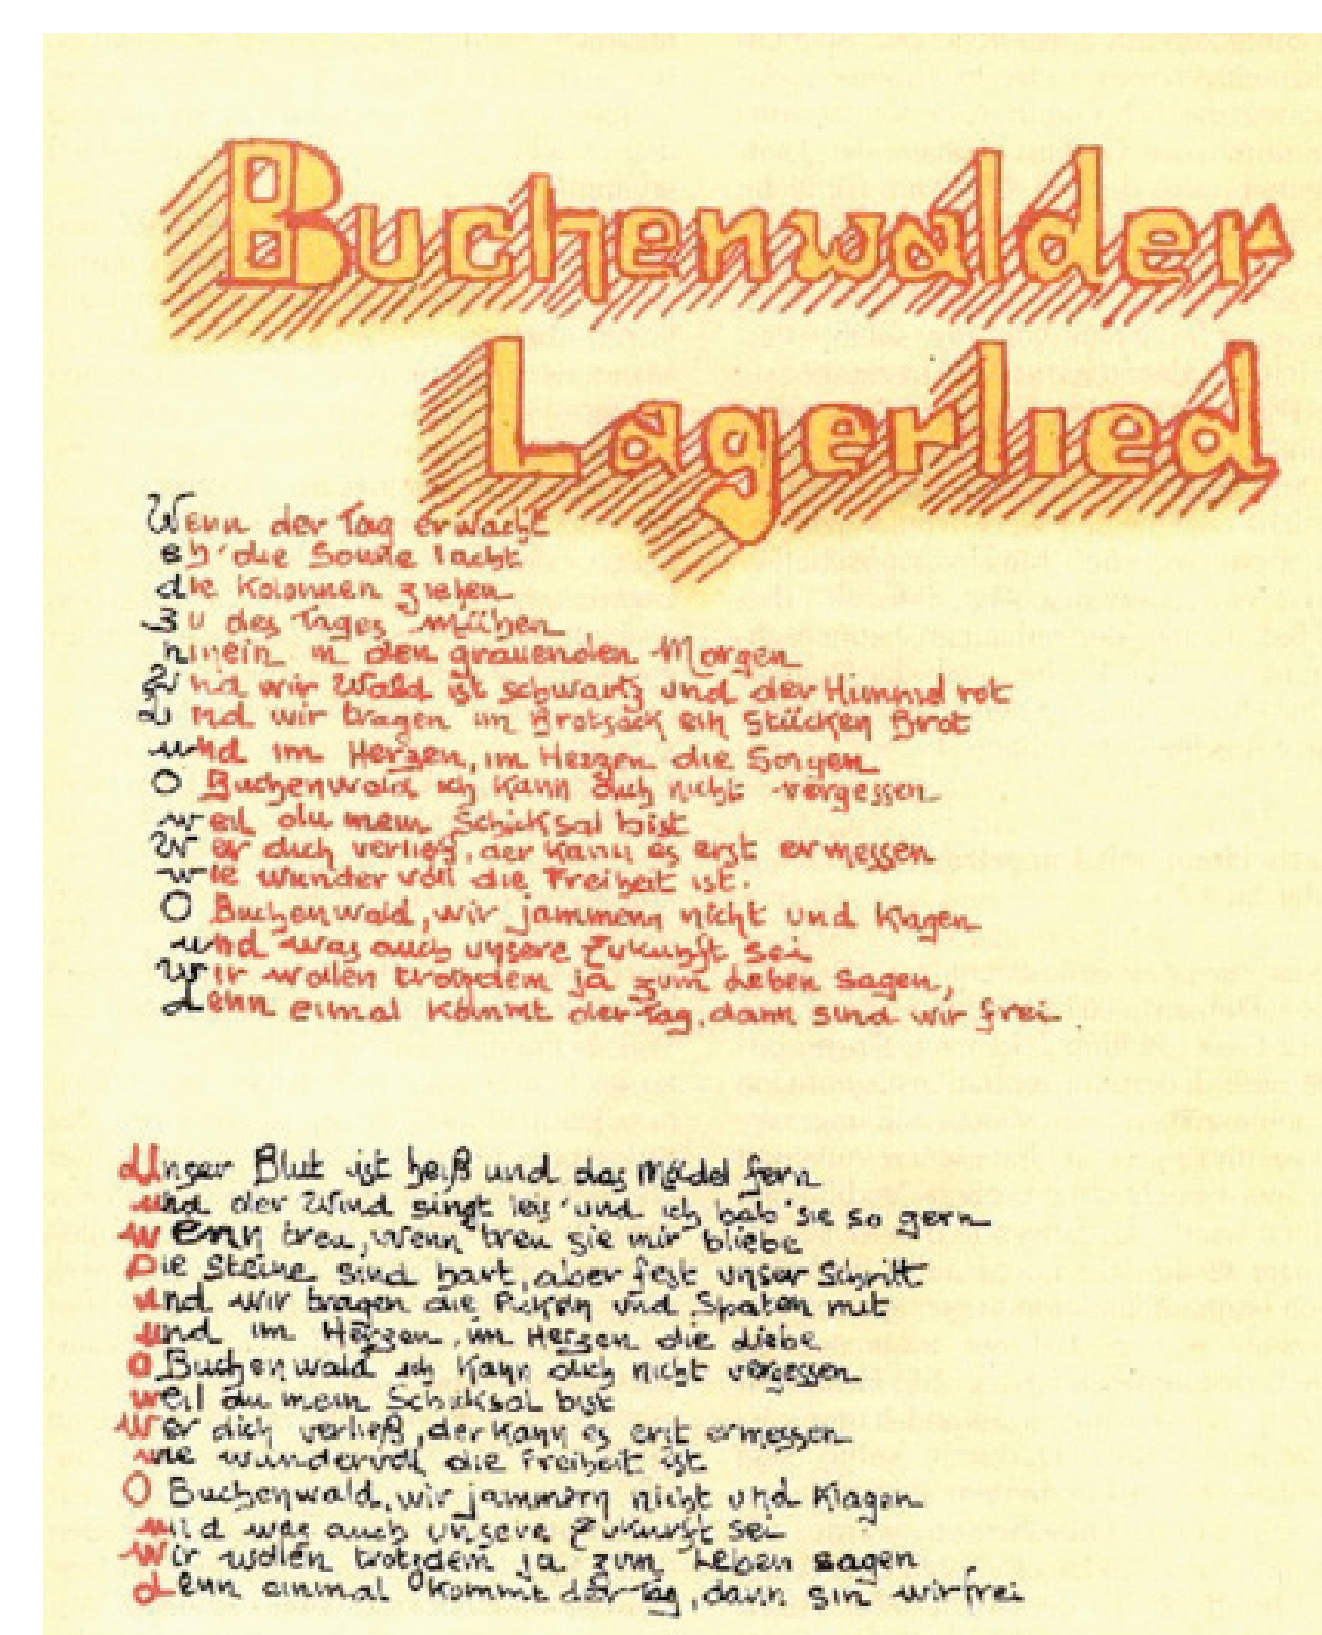 Buchenwalder
Lagerlied
Wenn der Tag erwacht
eh' die Sonne lacht
die Kolonnen ziehen
Zu des Tages mühen
hinein in den grauenden Morgen
Und wir Wald ist schwartz und der Himmel rot
Und wir tragen im Brotsack ein Stücken Brot
und im Herzen, im Herzen die Sorgen
O Buchenwald ich kann dich nicht vergessen
weil du mein Schicksal bist
Wer dich verließ, der kann es erst ermessen
wie wunder voll die Freiheit ist.
O Buchenwald, wir jammern nicht und klagen
und was auch unsere Zukunft sei
Wir wollen trotzdem ja zum Leben sagen,
denn eimal kommt der Tag, dann sind wir frei
Unser Blut ist heiß und das Mädel fern
und der Wind singt leis' und ich hab' sie so gern
wenn treu, wenn treu sie mir bliebe
Die Steine sind hart, aber fest unser Schritt
und wir tragen die Picken und Spaten mit
und im Herzen, im Herzen die Liebe
O Buchenwald ich kann dich nicht vergessen
weil du mein Schicksal bist
Wer dich verließ, der kann es erst ermessen
wie wundervoll die Freiheit ist
O Buchenwald, wir jammern nicht und klagen
und was auch unsere Zukunft sei
Wir wollen trotzdem ja zum Leben sagen
denn einmal kommt der Tag, dann sin wir frei